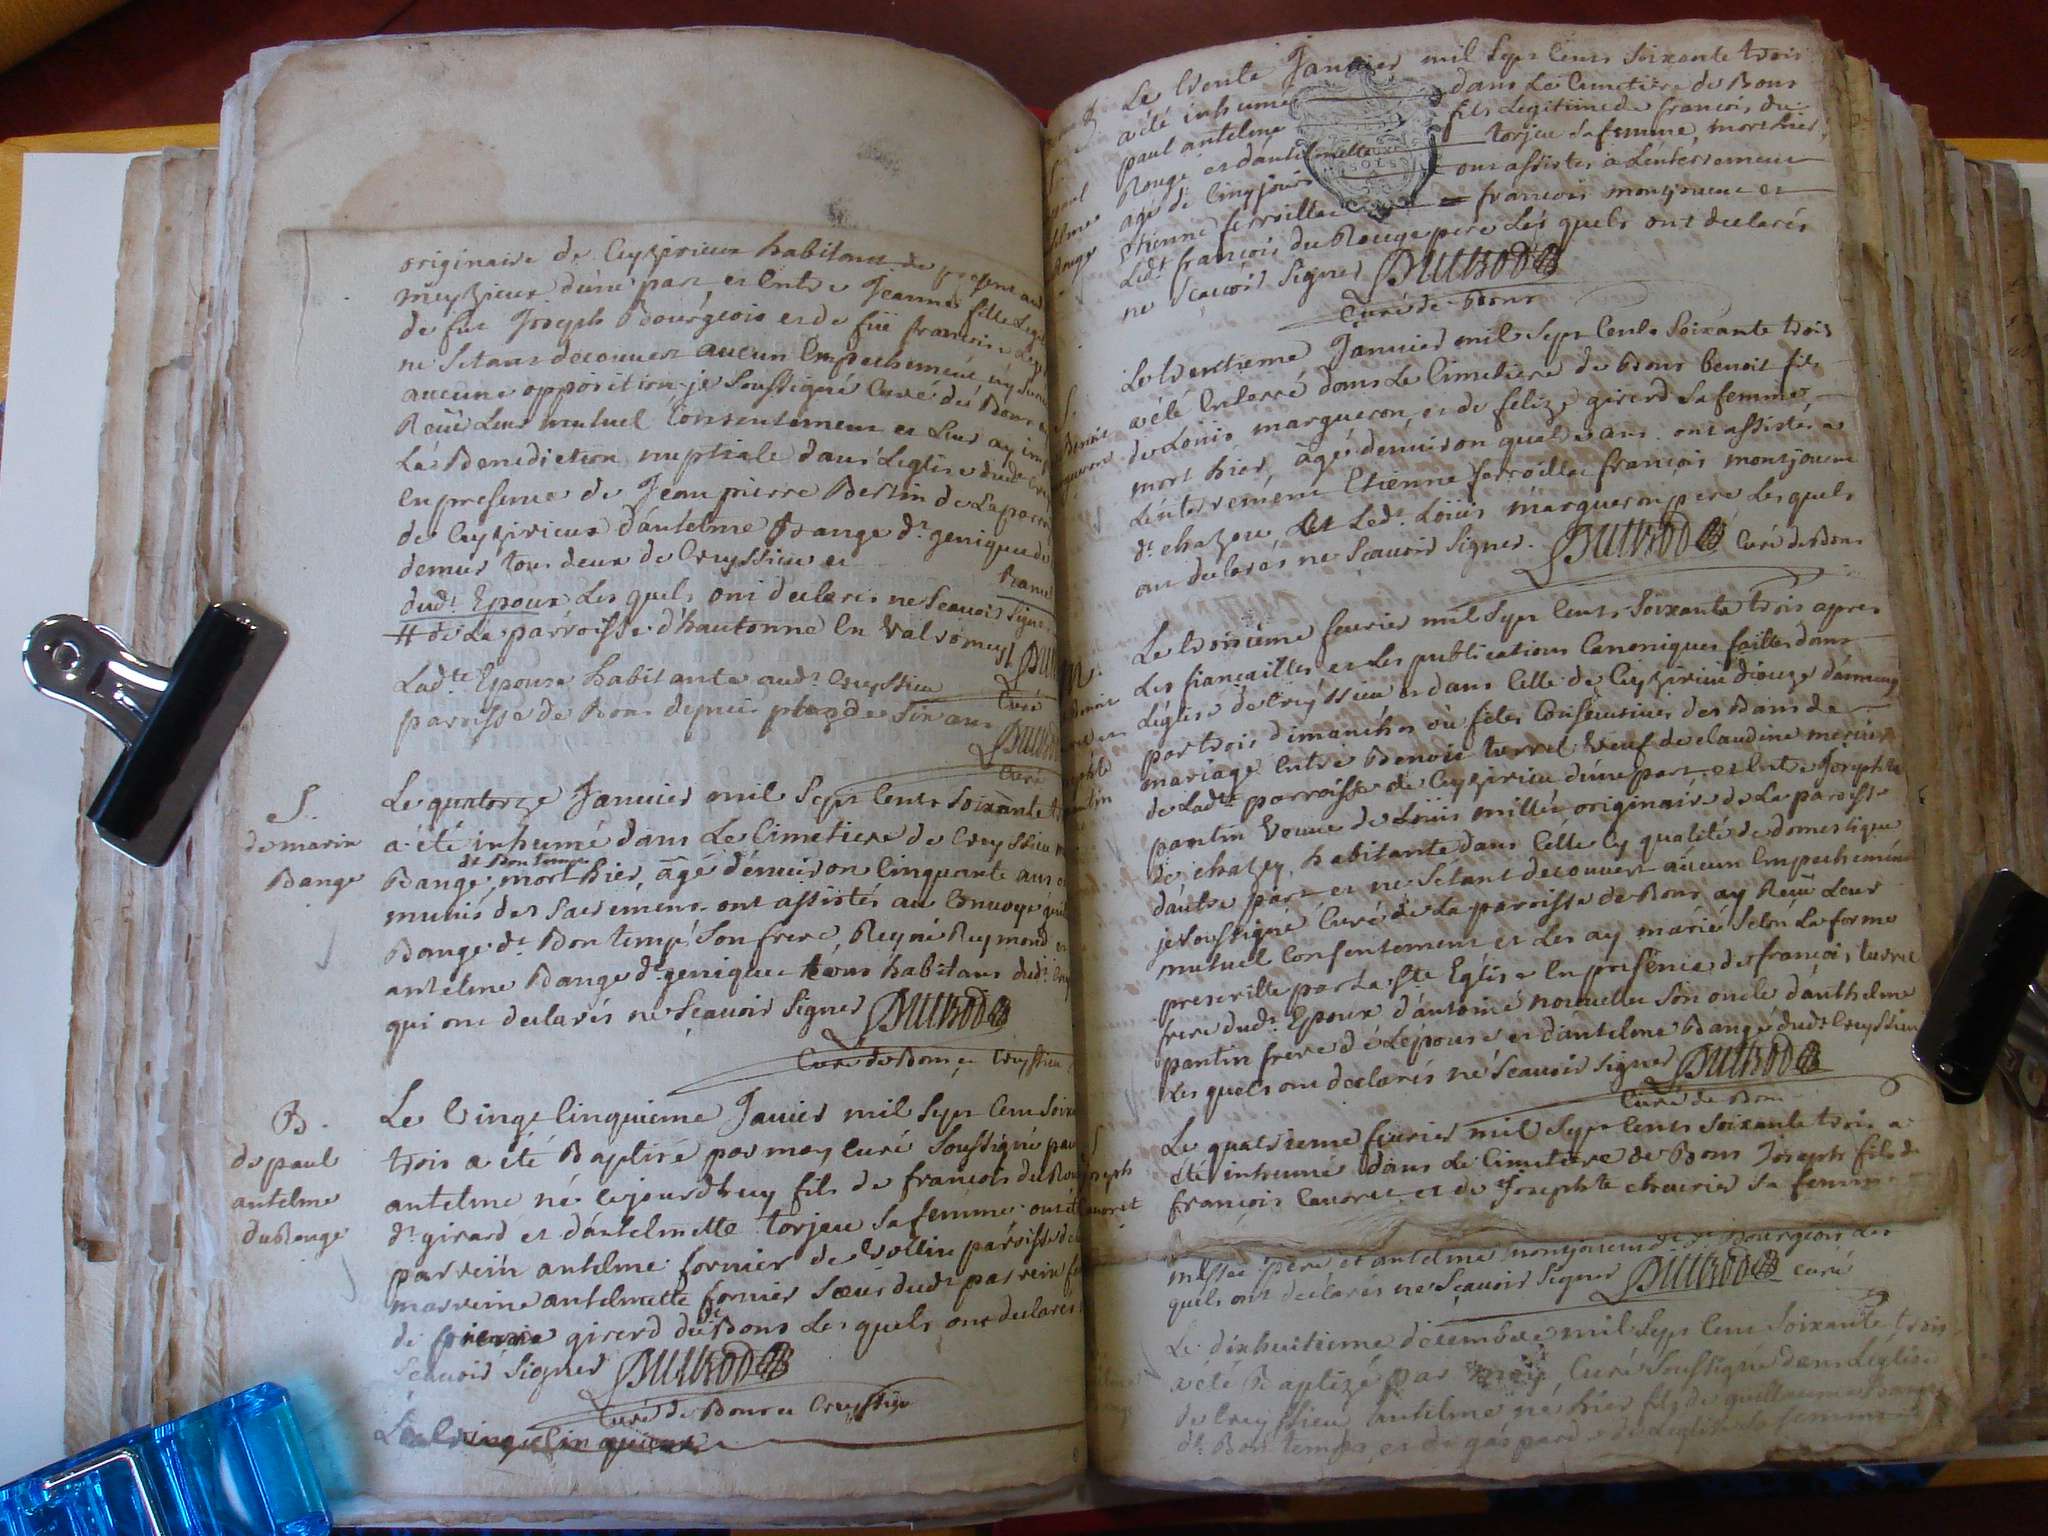 originaire de Ceyzirieux habitant de present aud
meyzieux d'une part et entre Jeanne fille Legit
de fut Joseph Bourgeois et de füe francoise
ne s'etant decouvert aucun Empechement, ny
aucune opposition je soussigné Curé de Bons
Receu Leur mutuel Consentement et Leur ay
La Benediction nuptiale dans L'eglise dud.t
en presence de Jean pierre Bertin de La paroi
de Ceyzirieux d'antelme Bange d.t genique de
demur tous deux de Creyssieu et
dud.t Epoux Les quels ont declarés ne scavoir signer
# de La parroisse d'hautonne en valromey
Lad.te Epouse habitante aud.t Creyssieu
paroisse de Bons depuis plus de six ans
Curé
Curé
S.
de marin
Bange
Le quatorze Janvier mil sept cents soixante
a été inhumé dans Le Cimetiere de Creyssieu
d.t Bon temps
Bange, mort hier, âgé d'environ cinquante ans
munis des sacremens ont assistés au Convoye
Bange d.t Bontemps son frere, Reymond
antelme Bange d.t genique tous habitans dud.t
qui ont declarés ne scavoir signer
Curé de Bons et Creyssieu
B.
de paul
antelme
du Rouge
Le vingt cinquieme Janvier mil sept cent soix
trois a été Baptisé par moy curé soussigné pa
antelme né cejourdhuy fils de francois du Rou
d.t girard et d'antelmette torjeu sa femme ont
parrein antelme fornier de vollin paroisse de
marreine antelmette fornier soeur dud.t parrein
de girerd de Bons Les quels ont declarés
scavoir signer
Curé de Bons et Creyssieu
Le vingt cinquieme
paul
Rouge
Le trente Janvier mil sept cents soixante trois
a été inhumé dans Le Cimetiere de Bons
paul antelme fils Legitime de francois du
Rouge et d'antelmette torjeu sa femme, mort hier,
agé de cinq jours ont assistés a L'enterrement
Etienne ferroillet francois montjouent et
Led.t francois du Rouge pere Les quels ont declarés
ne scavoir signer
Curé de Bons
S.
Benoit
Le trentieme Janvier mil sept cents soixante trois
a été enterré dans Le Cimetiere de Bons benoit fils
de Loüis margueron et de felize girerd sa femme,
mort hier, âgé d'environ quatre ans ont assistés a
L'enterrement Etienne ferroillet francois montjouent
d.t chazou, et Led.t Loüis margueron pere Les quels
ont declarés ne scavoir signer. Curé de Bons
Le troisieme fevrier mil sept cents soixante trois apres
Les fiancailles et Les publications Canoniques faittes dans
L'église de Creyssieu et dans Celle de Ceyzirieu
par trois dimanches ou fetes Consecutives des Bans de
mariage entre Benoit turrel veuf de claudine
de Lad.te parroisse de Ceyzirieu d'une part, et entre Josephte
pantin veuve de Loüis millet originaire de La paroisse
de chazey, habitante dans Celle Cy qualité de domestique
d'autre part et ne s'etant decouvert aucun Empechement
je soussigné Curé de La paroisse de Bons ay Receu Leur
mutuel Consentement et Les ay mariés selon La forme
prescritte par La Ste Eglise en presence de francois turrel
frere dud.t Epoux d'antoine son oncle d'anthelme
pantin frere de L'épouse et d'antelme Bange dud.t Creyssieu
Les quels ont declarés ne scavoir signer
Curé de Bons
S
Joseph
Le quatrieme fevrier mil sept cents soixante trois a
été inhumé dans Le Cimetiere de Bons Joseph fils de
francois Cavoret et de Josephte chevrier sa femme
pere et antelme montjouent d.t Bourgeois Les
quels ont declarés ne scavoir signer curé
Le dixhuitieme decembre mil sept cent soixante trois
a été Baptizé par moy Curé soussigné dans L'eglise
de Creyssieu antelme né hier fils de guillaume Bange
d.t Bon temps et de gasparde de L'eglise sa femme